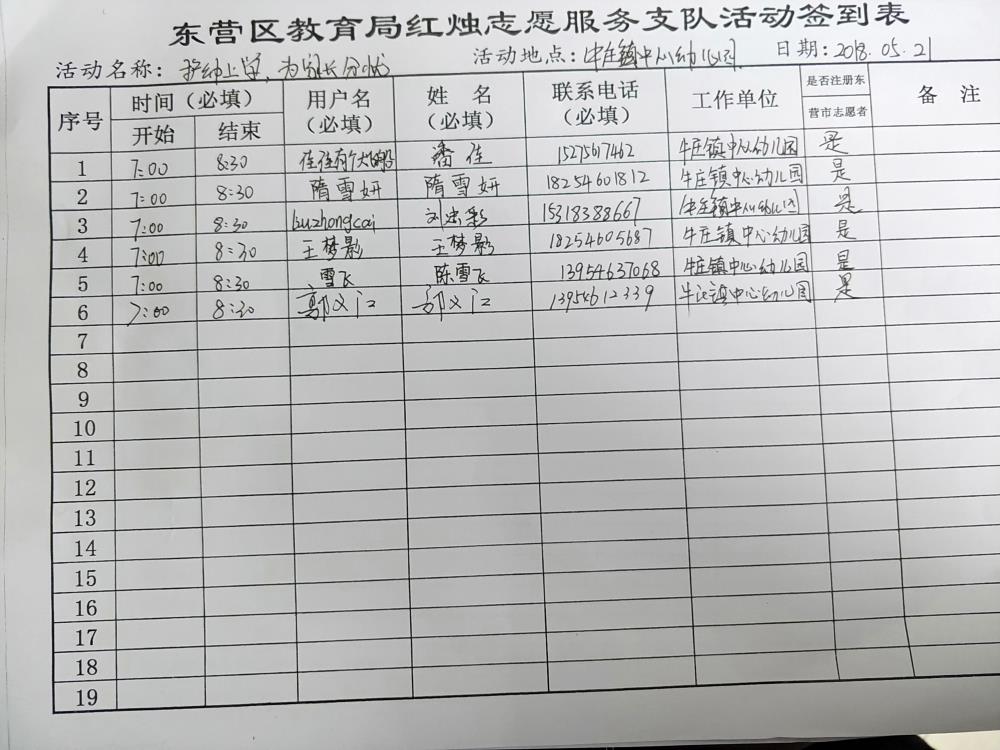 东营区教育局红烛志愿服务支队活动签到表
活动名称：护幼上学，为家长分忧 活动地点：牛庄镇中心幼儿园 日期：2018.05.21
序号 时间（必填） 开始 结束 用户名（必填） 姓 名（必填） 联系电话（必填） 工作单位 是否注册东营市志愿者 备 注
1 7:00 8:30 佳佳有个大船 潘佳 15275617462 牛庄镇中心幼儿园 是
2 7:00 8:30 隋雪妍 隋雪妍 18254601812 牛庄镇中心幼儿园 是
3 7:00 8:30 liuzhongcai 刘忠彩 15318388667 牛庄镇中心幼儿园 是
4 7:00 8:30 王梦影 王梦影 18254605687 牛庄镇中心幼儿园 是
5 7:00 8:30 雪飞 陈雪飞 13954637068 牛庄镇中心幼儿园 是
6 7:00 8:30 郭义江 郭义江 13954612339 牛庄镇中心幼儿园 是
7
8
9
10
11
12
13
14
15
16
17
18
19